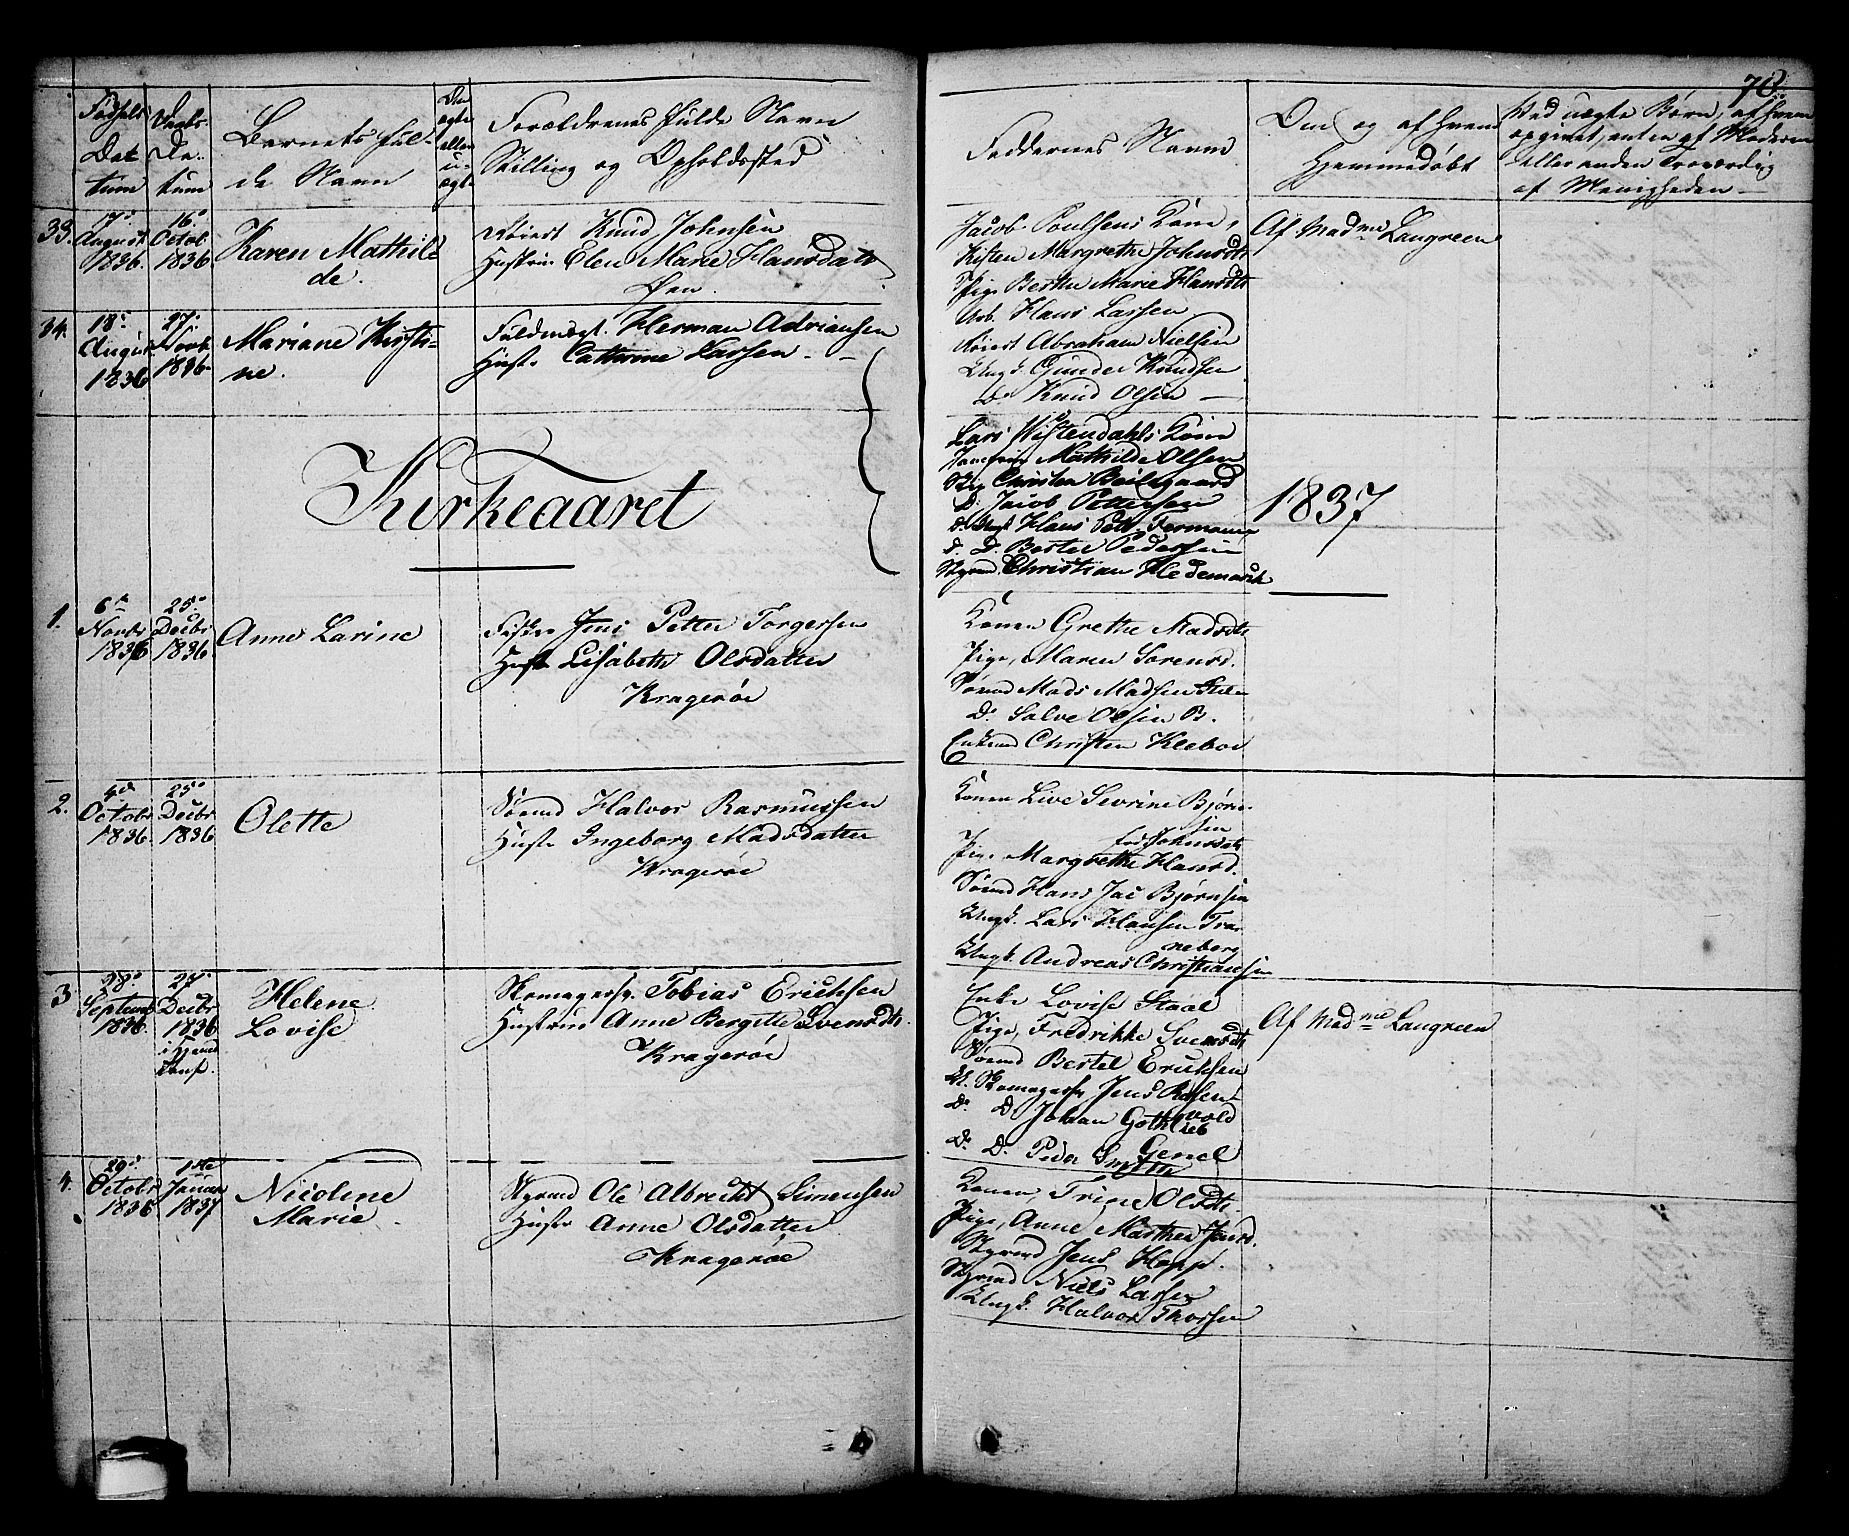 70.
Fødsels
Datum
Daabs-
Da-
tum
Barnets ful-
de Navn
Om
ægte
eller
u-
ægte
Forældrenes fulde Navn
Stilling og Opholdssted
Faddernes Navne
Om og af hvem
Hjemmedøbt
Ved uægte Børn, af hvem
opgivet, enten af Moderen
eller anden Troværdig
af Menigheden
33.
17de
August
1836.
16de
Octob
1836
Karen Mathil-
de.
Knud Johnsen
Hustrue Elen Marie Hansdatr
Øen.
Jacob Poulsens Kone,
Kisten Margrethe Johnsdtr
Pige Berthe Marie Hansdtr
Arb. Hans Larsen
Abraham Nielsen
Ungk. Gunder Knudsen
Do Knud Olsen
Af Madme Laugreen
34.
18de
August
1836
27de
Novbr
1836
Mariane Kirsti-
ne.
Fuldmægt. Herman Adriansen
Hustr. Cathrine Larsen
Lars Wistendahls Kone
Jomfrue Mathilde Olsen
Christen
D. Jacob Pettersen
D. Ungk Hans Pett.
D. D. Bertel Pedersen
Styrmd. Christian Hedemark
Kirkeaaret
1837
1.
6te
Novbr
1836
25de
Decbr
1836
Anne Larine
Jens Petter Torgersen
Hustr Lisabeth Olsdatter
Kragerøe
Konen Grethe Madsdtr
Pige, Maren Sørensd.
Sømd Mads Madsen
Do Salve Olsen B.
Enkemd Christen Kleboe
2.
4de
Octobr
1836.
25de
Decbr
1836
Olette
Sømd Halvor Rasmussen
Hustr Ingeborg Madsdatter
Kragerøe
Konen Live Sevrine Bjørn-
sen
Johnsdtr
Pige Margrethe Hansd.
Sømd Hans Jac Bjørnsen
Ungk. Lars Hansen Tra-
neberg
Ungk. Andreas Christiansen
3
28de
Septemb
1836.
27de
Decbr
1836
Helene
Lovise
Skomagersv. Tobias Ericksen
Hustrue Anne Bergitte Svensdtr
Kragerøe
Enke Lovise Staal
Pige, Fredrikke Svensdtr
Sømd Bertel Ericksen
U. Skomagersv Jens Rosen-
vold
D. D Johan Gothlieb
Genel
D. D. Peder Smith
Af Madme Laugreen
4.
29de
Octobr
1836
1ste
Januar
1837
Nicoline
Marie
Styrmd Ole Albrecht Simensen
Hustr Anne Olsdatter
Kragerøe
Konen, Trine Olsdtr.
Pige, Anne Marthea Jansd.
Styrmd Jens Hopp.
Styrmd Niels Larsen
Ungk. Halvor Thorsen